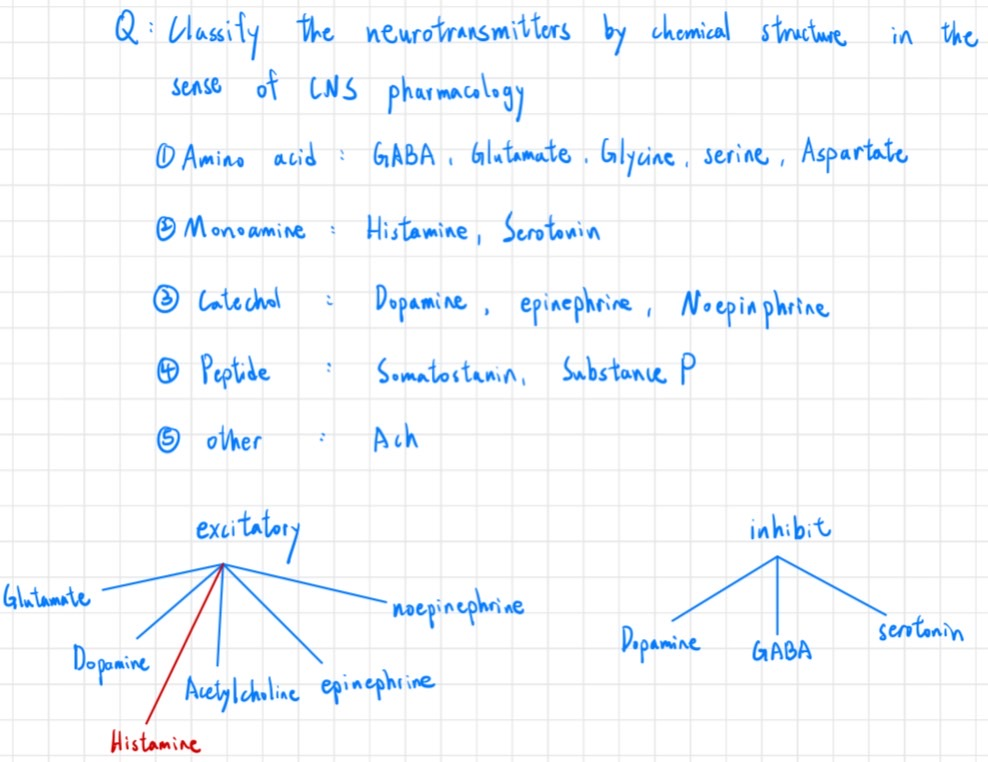 Q: Classify the neurotransmitters by chemical structure in the
sense of CNS pharmacology
① Amino acid : GABA, Glutamate, Glycine, serine, Aspartate
② Monoamine : Histamine, Serotonin
③ Catechol : Dopamine, epinephrine, Noepinphrine
④ Peptide : Somatostanin, Substance P
⑤ other : Ach
excitatory
Glutamate
Dopamine
Histamine
Acetylcholine
epinephrine
noepinephrine
inhibit
Dopamine
GABA
serotonin